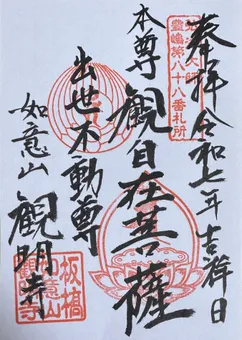 奉拝 令和七年吉祥日
豊嶋第八十八番札所
本尊 觀自在菩薩
出世不動尊
如意山 觀明寺
板橋
如意山
觀明寺